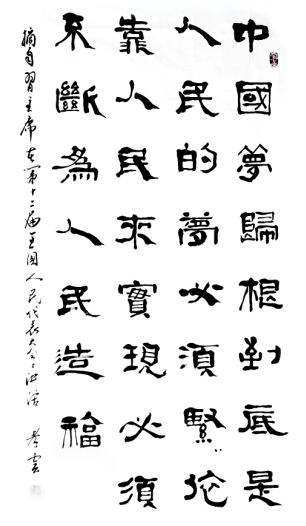 中國夢歸根到底是
人民的夢必須緊〻依
靠人民來實現必須
不斷為人民造福
摘自習主席在第十二届全国人民代表大会上讲话 雲